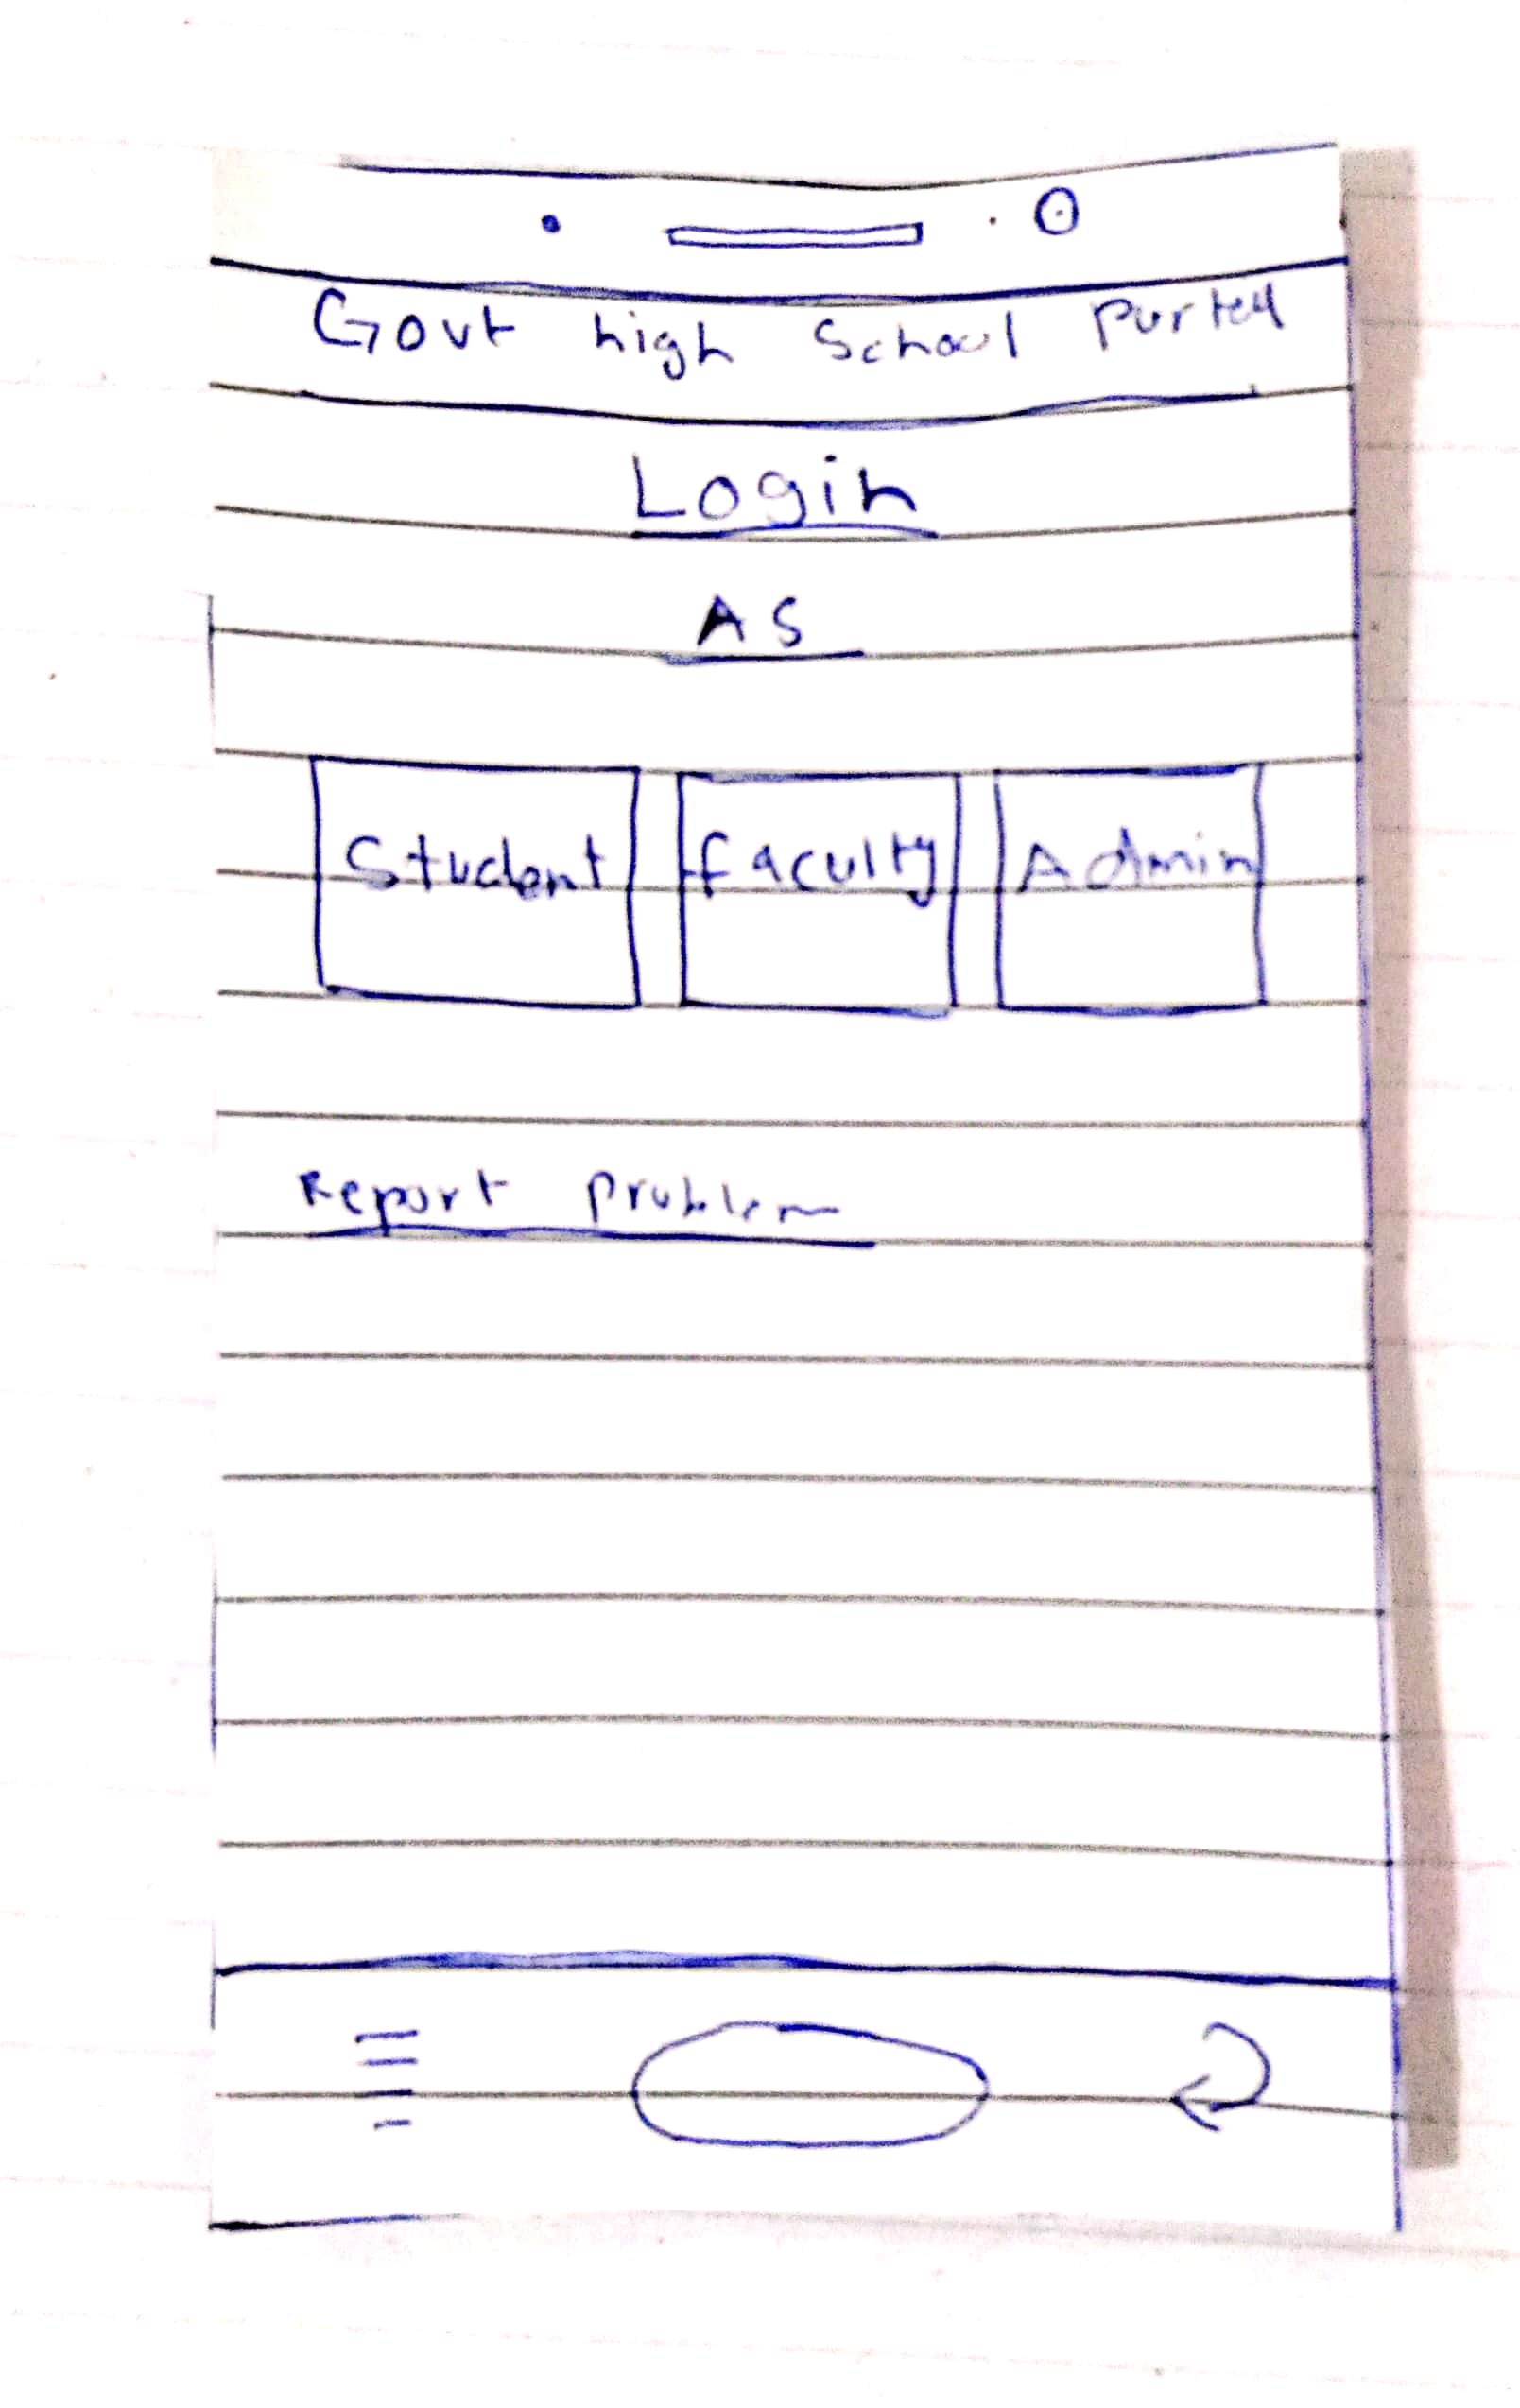 Govt high School Portal
Login
AS
Student faculty Admin
Report problem